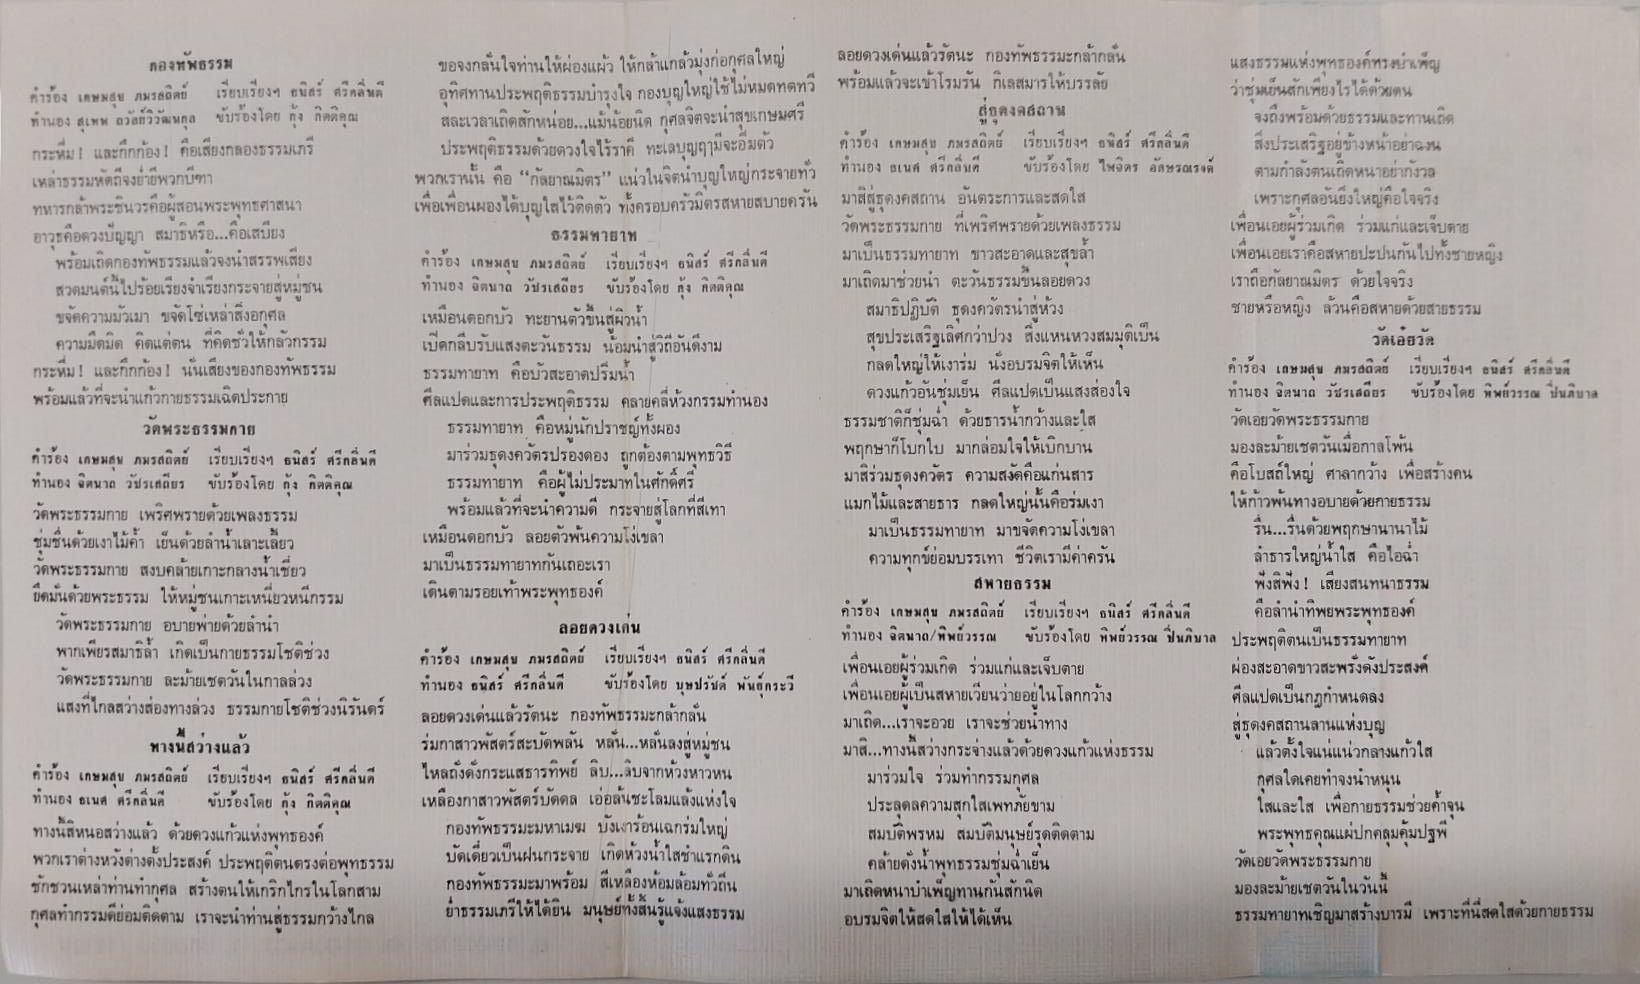 กองทัพธรรม
คำร้อง เกษมสุข ภมรสถิตย์ เรียบเรียงฯ ธนิสร์ ศรีกลิ่นดี
ทำนอง สุเทพ ถวัลย์วิวัฒนกุล ขับร้องโดย กุ้ง กิตติคุณ
กระหึ่ม! และกึกก้อง! คือเสียงกลองธรรมเภรี
เหล่าธรรมหัตถีจงย่ำยีพวกบีฑา
ทหารกล้าพระชินวรคือผู้สอนพระพุทธศาสนา
อาวุธคือดวงปัญญา สมาธิหรือ...คือเสบียง
พร้อมเถิดกองทัพธรรมแล้วจงนำสรรพเสียง
สวดมนต์นี้ไปร้อยเรียงจำเรียงกระจายสู่หมู่ชน
ขจัดความมัวเมา ขจัดโซ่เหล่าสิ่งอกุศล
ความมืดมิด คิดแต่ตน ที่คิดชั่วให้กลัวกรรม
กระหึ่ม! และกึกก้อง! นั่นเสียงของกองทัพธรรม
พร้อมแล้วที่จะนำแก้วกายธรรมเฉิดประกาย
วัดพระธรรมกาย
คำร้อง เกษมสุข ภมรสถิตย์ เรียบเรียงฯ ธนิสร์ ศรีกลิ่นดี
ทำนอง จิตนาถ วัชรเสถียร ขับร้องโดย กุ้ง กิตติคุณ
วัดพระธรรมกาย เพริศพรายด้วยเพลงธรรม
ชุ่มชื่นด้วยเงาไม้ค้ำ เย็นด้วยลำน้ำเลาะเลี้ยว
วัดพระธรรมกาย สงบคล้ายเกาะกลางน้ำเชี่ยว
ยึดมั่นด้วยพระธรรม ให้หมู่ชนเกาะเหนี่ยวหนีกรรม
วัดพระธรรมกาย อบายพ่ายด้วยลำนำ
พากเพียรสมาธิล้ำ เกิดเป็นกายธรรมโชติช่วง
วัดพระธรรมกาย ละม้ายเชตวันในกาลล่วง
แสงที่ไกลสว่างส่องทางล่วง ธรรมกายโชติช่วงนิรันดร์
ทางนี้สว่างแล้ว
คำร้อง เกษมสุข ภมรสถิตย์ เรียบเรียงฯ ธนิสร์ ศรีกลิ่นดี
ทำนอง ธเนศ ศรีกลิ่นดี ขับร้องโดย กุ้ง กิตติคุณ
ทางนี้สิหนอสว่างแล้ว ด้วยดวงแก้วแห่งพุทธองค์
พวกเราต่างหวังต่างตั้งประสงค์ ประพฤติตนตรงต่อพุทธธรรม
ชักชวนเหล่าท่านทำกุศล สร้างตนให้เกริกไกรในโลกสาม
กุศลทำกรรมดีย่อมติดตาม เราจะนำท่านสู่ธรรมกว้างไกล
ขอจงกลั่นใจท่านให้ผ่องแผ้ว ให้กล้าแกล้วมุ่งก่อกุศลใหญ่
อุทิศทานประพฤติธรรมบำรุงใจ กองบุญใหญ่ใช้ไม่หมดทดทวี
สละเวลาเถิดสักหน่อย...แม้น้อยนิด กุศลจิตจะนำสุขเกษมศรี
ประพฤติธรรมด้วยดวงใจไร้ราคี ทะเลบุญฤามีจะอิ่มตัว
พวกเรานั้น คือ “กัลยาณมิตร” แน่วในจิตนำบุญใหญ่กระจายทั่ว
เพื่อเพื่อนผองได้บุญใสไว้ติดตัว ทั้งครอบครัวมิตรสหายสบายครัน
ธรรมทายาท
คำร้อง เกษมสุข ภมรสถิตย์ เรียบเรียงฯ ธนิสร์ ศรีกลิ่นดี
ทำนอง จิตนาถ วัชรเสถียร ขับร้องโดย กุ้ง กิตติคุณ
เหมือนดอกบัว ทะยานตัวขึ้นสู่ผิวน้ำ
เปิดกลีบรับแสงตะวันธรรม น้อมนำสู่วิถีอันดีงาม
ธรรมทายาท คือบัวสะอาดปริ่มน้ำ
ศีลแปดและการประพฤติธรรม คลายคลี่ห้วงกรรมทำนอง
ธรรมทายาท คือหมู่นักปราชญ์ทั้งผอง
มาร่วมธุดงควัตรปรองดอง ถูกต้องตามพุทธวิธี
ธรรมทายาท คือผู้ไม่ประมาทในศักดิ์ศรี
พร้อมแล้วที่จะนำความดี กระจายสู่โลกที่สีเทา
เหมือนดอกบัว ลอยตัวพ้นความโง่เขลา
มาเป็นธรรมทายาทกันเถอะเรา
เดินตามรอยเท้าพระพุทธองค์
ลอยดวงเด่น
คำร้อง เกษมสุข ภมรสถิตย์ เรียบเรียงฯ ธนิสร์ ศรีกลิ่นดี
ทำนอง ธนิสร์ ศรีกลิ่นดี ขับร้องโดย บุษปรัชต์ พันธุ์กระวี
ลอยดวงเด่นแล้วรัตนะ กองทัพธรรมะกล้ากลั่น
ร่มกาสาวพัสตร์สะบัดพลัน หลั่น...หลั่นลงสู่หมู่ชน
ไหลถั่งดั่งกระแสธารทิพย์ ลิบ...ลิบจากห้วงหาวหน
เหลืองกาสาวพัสตร์บัดดล เอ่อล้นชะโลมแล้งแห่งใจ
กองทัพธรรมะมหาเมฆ บังเงาร้อนเฉกร่มใหญ่
บัดเดี๋ยวเป็นฝนกระจาย เกิดห้วงน้ำใสชำแรกดิน
กองทัพธรรมะมาพร้อม สีเหลืองห้อมล้อมทั่วถิ่น
ย่ำธรรมเภรีให้ได้ยิน มนุษย์ทั้งสิ้นรู้แจ้งแสงธรรม
ลอยดวงเด่นแล้วรัตนะ กองทัพธรรมะกล้ากลั่น
พร้อมแล้วจะเข้าโรมรัน กิเลสมารให้บรรลัย
สู่ธุดงคสถาน
คำร้อง เกษมสุข ภมรสถิตย์ เรียบเรียงฯ ธนิสร์ ศรีกลิ่นดี
ทำนอง ธเนศ ศรีกลิ่นดี ขับร้องโดย ไพจิตร อักษรณรงค์
มาสิสู่ธุดงคสถาน อันตระการและสดใส
วัดพระธรรมกาย ที่เพริศพรายด้วยเพลงธรรม
มาเป็นธรรมทายาท ขาวสะอาดและสุขล้ำ
มาเถิดมาช่วยนำ ตะวันธรรมขึ้นลอยดวง
สมาธิปฏิบัติ ธุดงควัตรนำสู่ห้วง
สุขประเสริฐเลิศกว่าปวง สิ่งแหนหวงสมมุติเป็น
กลดใหญ่ให้เงาร่ม นั่งอบรมจิตให้เห็น
ดวงแก้วอันชุ่มเย็น ศีลแปดเป็นแสงส่องใจ
ธรรมชาติก็ชุ่มฉ่ำ ด้วยธารน้ำกว้างและใส
พฤกษาก็โบกใบ มากล่อมใจให้เบิกบาน
มาสิร่วมธุดงควัตร ความสงัดคือแก่นสาร
แมกไม้และสายธาร กลดใหญ่นั้นคือร่มเงา
มาเป็นธรรมทายาท มาขจัดความโง่เขลา
ความทุกข์ย่อมบรรเทา ชีวิตเรามีค่าครัน
สหายธรรม
คำร้อง เกษมสุข ภมรสถิตย์ เรียบเรียงฯ ธนิสร์ ศรีกลิ่นดี
ทำนอง จิตนาถ/พิพย์วรรณ ขับร้องโดย พิพย์วรรณ ปิ่นภิบาล
เพื่อนเอยผู้ร่วมเกิด ร่วมแก่และเจ็บตาย
เพื่อนเอยผู้เป็นสหายเวียนว่ายอยู่ในโลกกว้าง
มาเถิด...เราจะอวย เราจะช่วยนำทาง
มาสิ...ทางนี้สว่างกระจ่างแล้วด้วยดวงแก้วแห่งธรรม
มาร่วมใจ ร่วมทำกรรมกุศล
ประลุดลความสุกใสเพทภัยขาม
สมบัติพรหม สมบัติมนุษย์รุดติดตาม
คล้ายดั่งน้ำพุทธรรมชุ่มฉ่ำเย็น
มาเถิดหนาบำเพ็ญทานกันสักนิด
อบรมจิตให้สดใสให้ได้เห็น
แสงธรรมแห่งพุทธองค์ทรงบำเพ็ญ
ว่าชุ่มเย็นสักเพียงไรได้ด้วยตน
จงถึงพร้อมด้วยธรรมและทานเถิด
สิ่งประเสริฐอยู่ข้างหน้าอย่าฉงน
ตามกำลังตนเถิดหนาอย่ากังวล
เพราะกุศลอันยิ่งใหญ่คือใจจริง
เพื่อนเอยผู้ร่วมเกิด ร่วมแก่และเจ็บตาย
เพื่อนเอยเราคือสหายปะปนกันไปทั้งชายหญิง
เราถือกัลยาณมิตร ด้วยใจจริง
ชายหรือหญิง ล้วนคือสหายด้วยสายธรรม
วัดเอ๋ยวัด
คำร้อง เกษมสุข ภมรสถิตย์ เรียบเรียงฯ ธนิสร์ ศรีกลิ่นดี
ทำนอง จิตนาถ วัชรเสถียร ขับร้องโดย พิพย์วรรณ ปิ่นภิบาล
วัดเอยวัดพระธรรมกาย
มองละม้ายเชตวันเมื่อกาลโพ้น
คือโบสถ์ใหญ่ ศาลากว้าง เพื่อสร้างคน
ให้ก้าวพ้นทางอบายด้วยกายธรรม
รื่น...รื่นด้วยพฤกษานานาไม้
ลำธารใหญ่น้ำใส คือไอฉ่ำ
ฟังสิฟัง! เสียงสนทนาธรรม
คือลำนำทิพยพระพุทธองค์
ประพฤติตนเป็นธรรมทายาท
ผ่องสะอาดขาวสะพรั่งดังประสงค์
ศีลแปดเป็นกฎกำหนดลง
สู่ธุดงคสถานลานแห่งบุญ
แล้วตั้งใจแน่แน่วกลางแก้วใส
กุศลใดเคยทำจงนำหนุน
ใสและใส เพื่อกายธรรมช่วยค้ำจุน
พระพุทธคุณแผ่ปกคลุมคุ้มปฐพี
วัดเอยวัดพระธรรมกาย
มองละม้ายเชตวันในวันนี้
ธรรมทายาทเชิญมาสร้างบารมี เพราะที่นี่สดใสด้วยกายธรรม